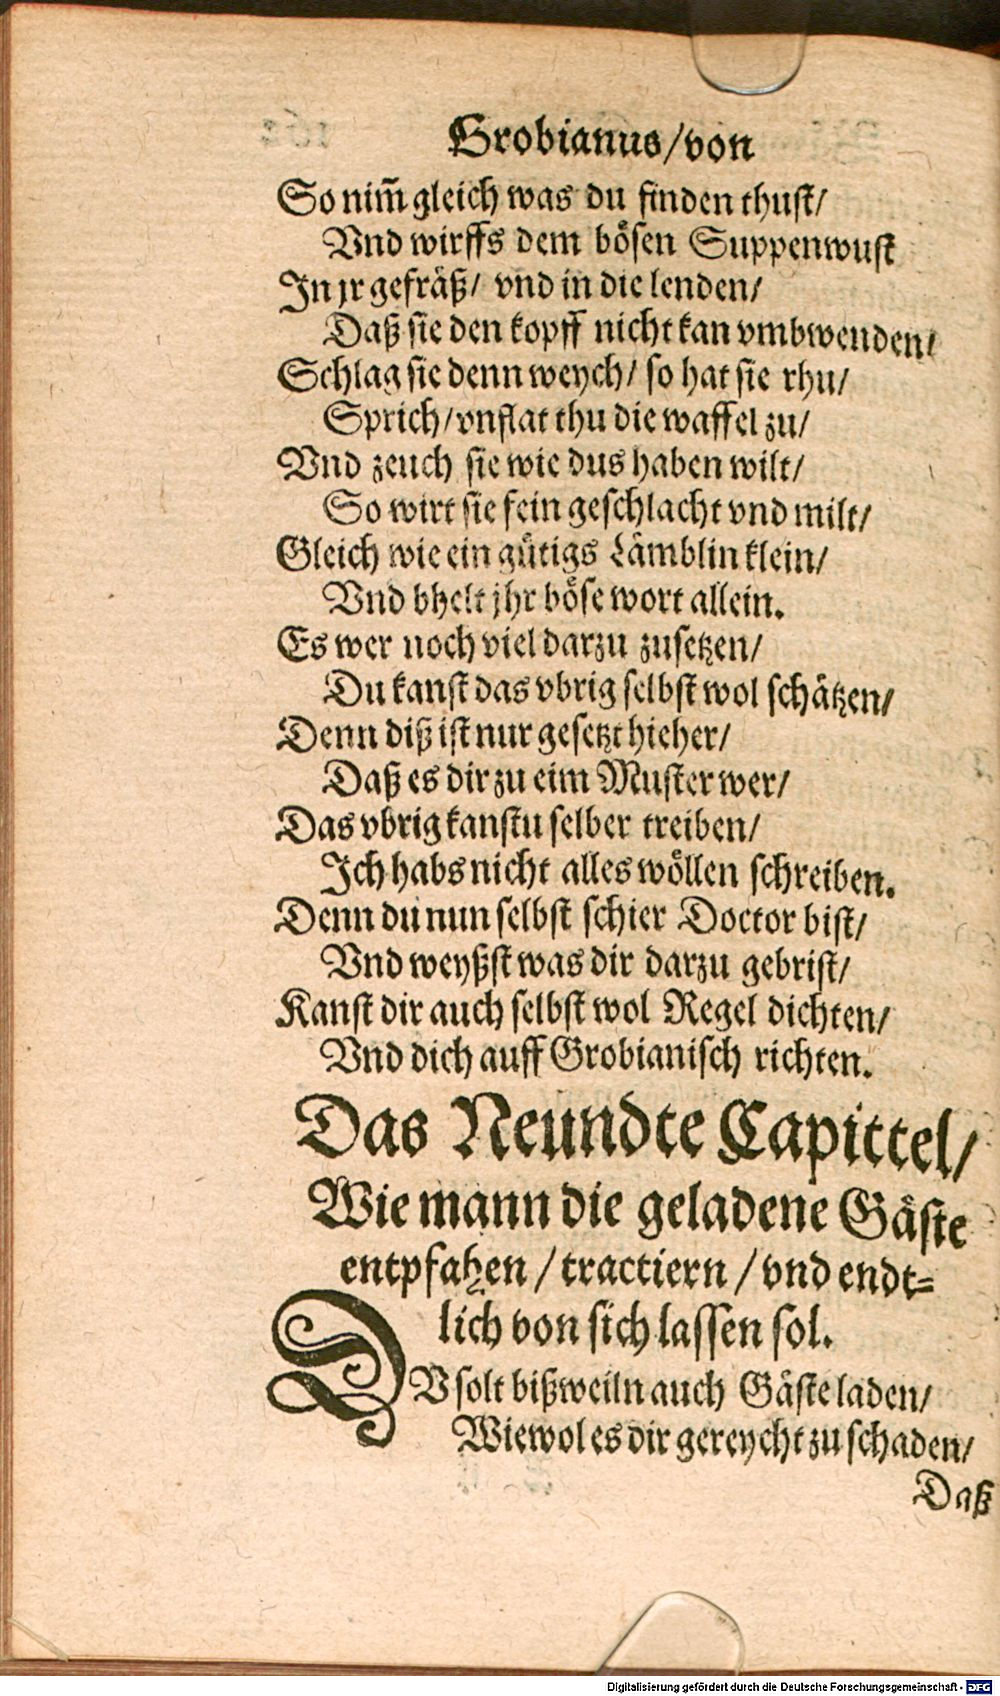 Grobianus/von
So nim̃ gleich was du finden thust/
Vnd wirffs dem bösen Suppenwust
In jr gefräß/ vnd in die lenden/
Daß sie den kopff nicht kan vmbwenden/
Schlag sie denn weych/ so hat sie rhu/
Sprich/vnflat thu die waffel zu/
Vnd zeuch sie wie dus haben wilt/
So wirt sie fein geschlacht vnd milt/
Gleich wie ein gütigs Lämblin klein/
Vnd bhelt jhr böse wort allein.
Es wer noch viel darzu zusetzen/
Du kanst das vbrig selbst wol schätzen/
Denn diß ist nur gesetzt hieher/
Daß es dir zu eim Muster wer/
Das vbrig kanstu selber treiben/
Ich habs nicht alles wöllen schreiben.
Denn du nun selbst schier Doctor bist/
Vnd weyßst was dir darzu gebrist/
Kanst dir auch selbst wol Regel dichten/
Vnd dich auff Grobianisch richten.
Das Neundte Capittel/
Wie mann die geladene Gäste
entpfahen / tractiern / vnd endt=
lich von sich lassen sol.
DV solt bißweiln auch Gäste laden/
Wiewol es dir gereycht zu schaden/
Daß
Digitalisierung gefördert durch die Deutsche Forschungsgemeinschaft - DFG